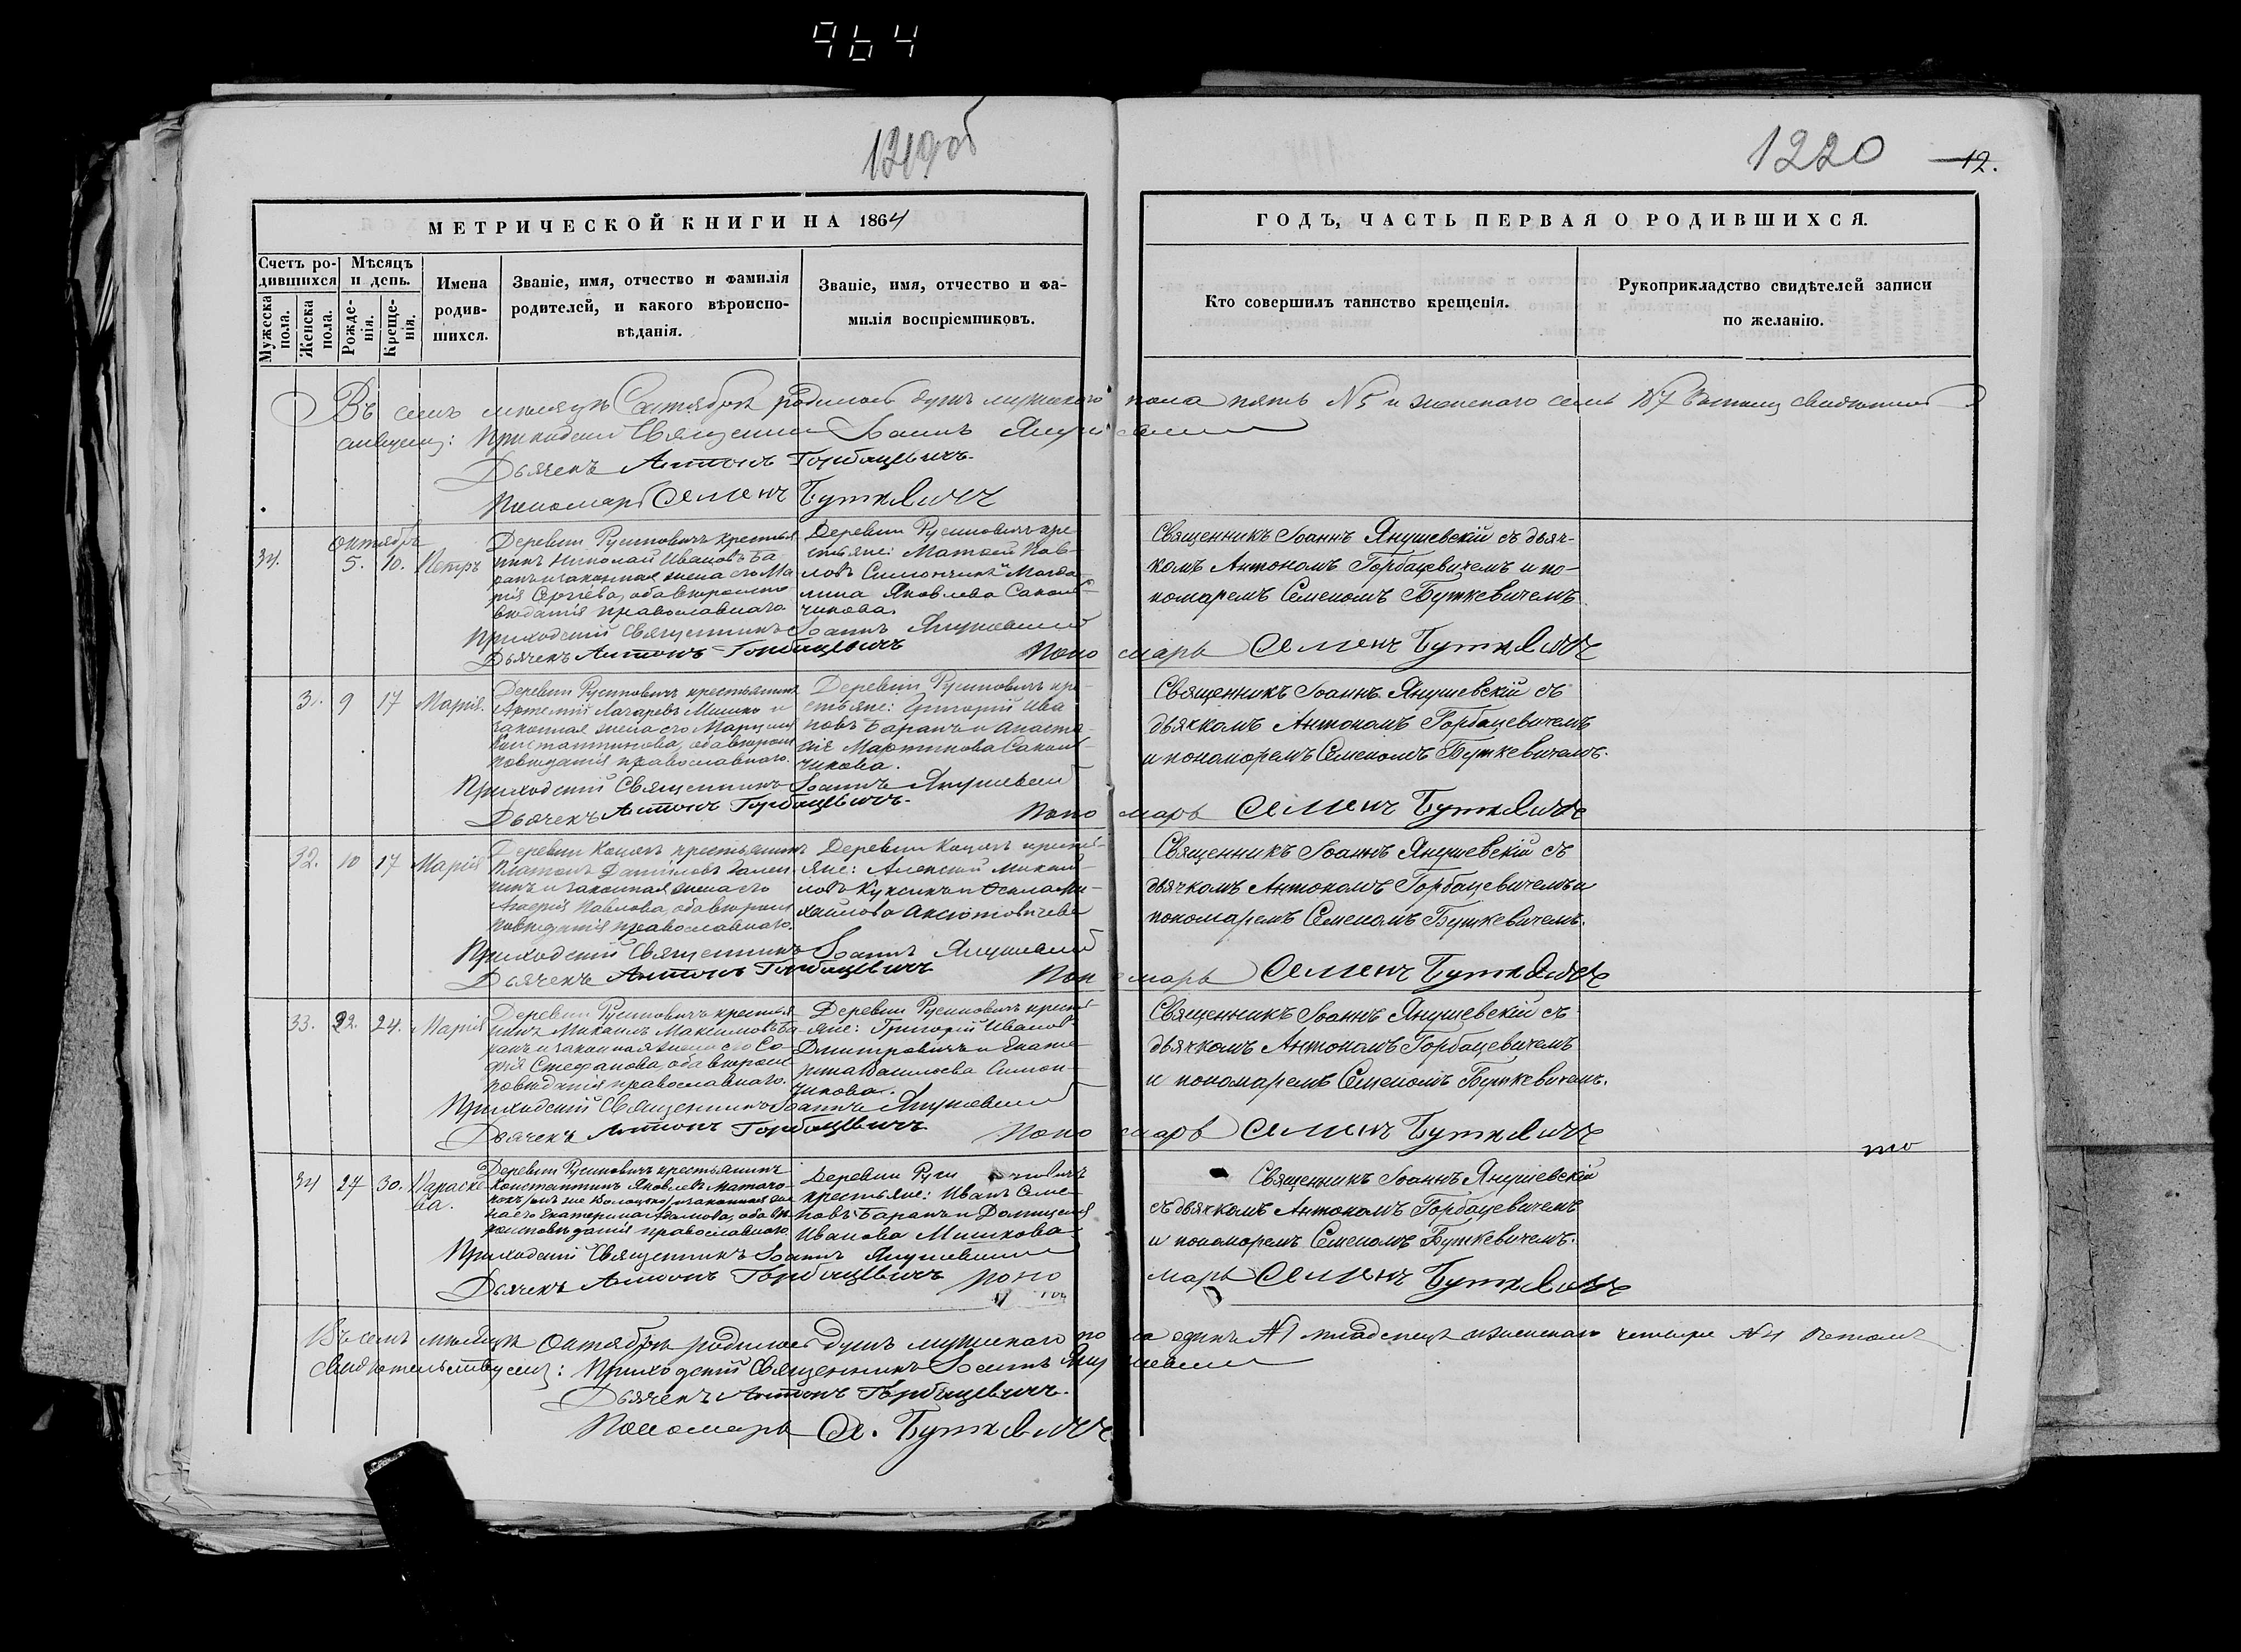 964
1219об
1220 12.
МЕТРИЧЕСКОЙ КНИГИ НА 1864
ГОДЪ, ЧАСТЬ ПЕРВАЯ О РОДИВШИХСЯ.
Счетъ родившихся
Мужеска пола.
Женска пола.
Мѣсяцъ и день.
Рожденія.
Крещенія.
Имена родившихся.
Званіе, имя, отчество и фамилія
родителей, и какого вѣроиспо-
вѣданія.
Званіе, имя, отчество и фа-
милія воспріемниковъ.
Кто совершилъ таинство крещенія.
Рукоприкладство свидѣтелей записи
по желанію.
Въ семъ мѣсяцѣ Сентябрѣ родилось душъ мужескаго пола пять №5 и женскаго семь №7 въ томъ
Приходскій Священникъ Іоаннъ Янушевскій
Дьячекъ Антонъ Горбацевичъ.
Пономарь Семенъ Буткевичъ
Октябрь
34. 5. 10. Петръ
Деревни Русиновичъ крестья
нинъ Николай Ивановъ Ба
ранъ и законная жена его Ма
рія Сергіева, оба
православнаго
Деревни Русиновичъ кре
стьяне: Матвей Пав-
ловъ Симончикъ и Магда
лина Яковлева Сакон-
чикова.
Священникъ Іоаннъ Янушевскій съ дьяч-
комъ Антономъ Горбацевичемъ и по-
номаремъ Семеномъ Буткевичемъ
Приходскій Священникъ Іоаннъ Янушевскій
Дьячекъ Антонъ Горбацевичъ
Пономарь Семенъ Буткевичъ
31. 9 17 Марія.
Деревни Русиновичъ крестьянинъ
Артемій Лазаревъ Мишко и
законная жена его Марцелія
Константинова, оба вѣроис
повѣданія православнаго.
Деревни Русиновичъ кре-
стьяне: Григорій Ива
новъ Баранъ и Анаста-
сія Мартинова Сакон-
чикова.
Священникъ Іоаннъ Янушевскій съ
дьячкомъ Антономъ Горбацевичемъ
и пономаремъ Семеномъ Буткевичемъ.
Приходскій Священникъ Іоаннъ Янушевскій
Дьячекъ Антонъ Горбацевичъ.
Пономарь Семенъ Буткевичъ
32. 10 17 Марія
Деревни крестьянинъ
Платонъ Даниловъ
и законная жена его
Павлова, оба вѣроис
повѣданія православнаго.
Деревни кресть-
яне: Алексій Михай-
ловъ Куксикъ и Ми-
хайлова Аксютовичева
Священникъ Іоаннъ Янушевскій съ
дьячкомъ Антономъ Горбацевичемъ и
пономаремъ Семеномъ Буткевичемъ.
Приходскій Священникъ Іоаннъ Янушевскій
Дьячекъ Антонъ Горбацевичъ
Пономарь Семенъ Буткевичъ
33. 22. 24. Марія
Деревни Русиновичъ крестья
нинъ Михаилъ Максимовъ Ба
ранъ и законная жена его Со-
фія Стефанова, оба вѣроис
повѣданія православнаго.
Деревни Русиновичъ кресть-
яне: Григорій Ивановъ
Дмитровичъ и Екате-
рина Васильева Симон-
чикова.
Священникъ Іоаннъ Янушевскій съ
дьячкомъ Антономъ Горбацевичемъ
и пономаремъ Семеномъ Буткевичемъ.
Приходскій Священникъ Іоаннъ Янушевскій
Дьячекъ Антонъ Горбацевичъ
Пономарь Семенъ Буткевичъ
34 27 30. Параске
ва.
Деревни Русиновичъ крестьянинъ
Константинъ Яковлевъ
и законная же
на его Екатерина оба вѣ
роисповѣданія православнаго.
Деревни Русиновичъ
крестьяне: Иванъ Семе-
новъ Баранъ и Домицеля
Иванова Мишкова
Священникъ Іоаннъ Янушевскій
съ дьячкомъ Антономъ Горбацевичемъ
и пономаремъ Семеномъ Буткевичемъ.
Приходскій Священникъ Іоаннъ Янушевскій
Дьячекъ Антонъ Горбацевичъ
Пономарь Семенъ Буткевичъ
Въ семъ мѣсяцѣ Октябрѣ родилось душъ мужескаго пола одинъ №1 младенецъ и женскаго четыре №4 въ томъ
свидѣтельствуемъ: Приходскій Священникъ Іоаннъ Янушевскій
Дьячекъ Антонъ Горбацевичъ.
Пономарь Се. Буткевичъ